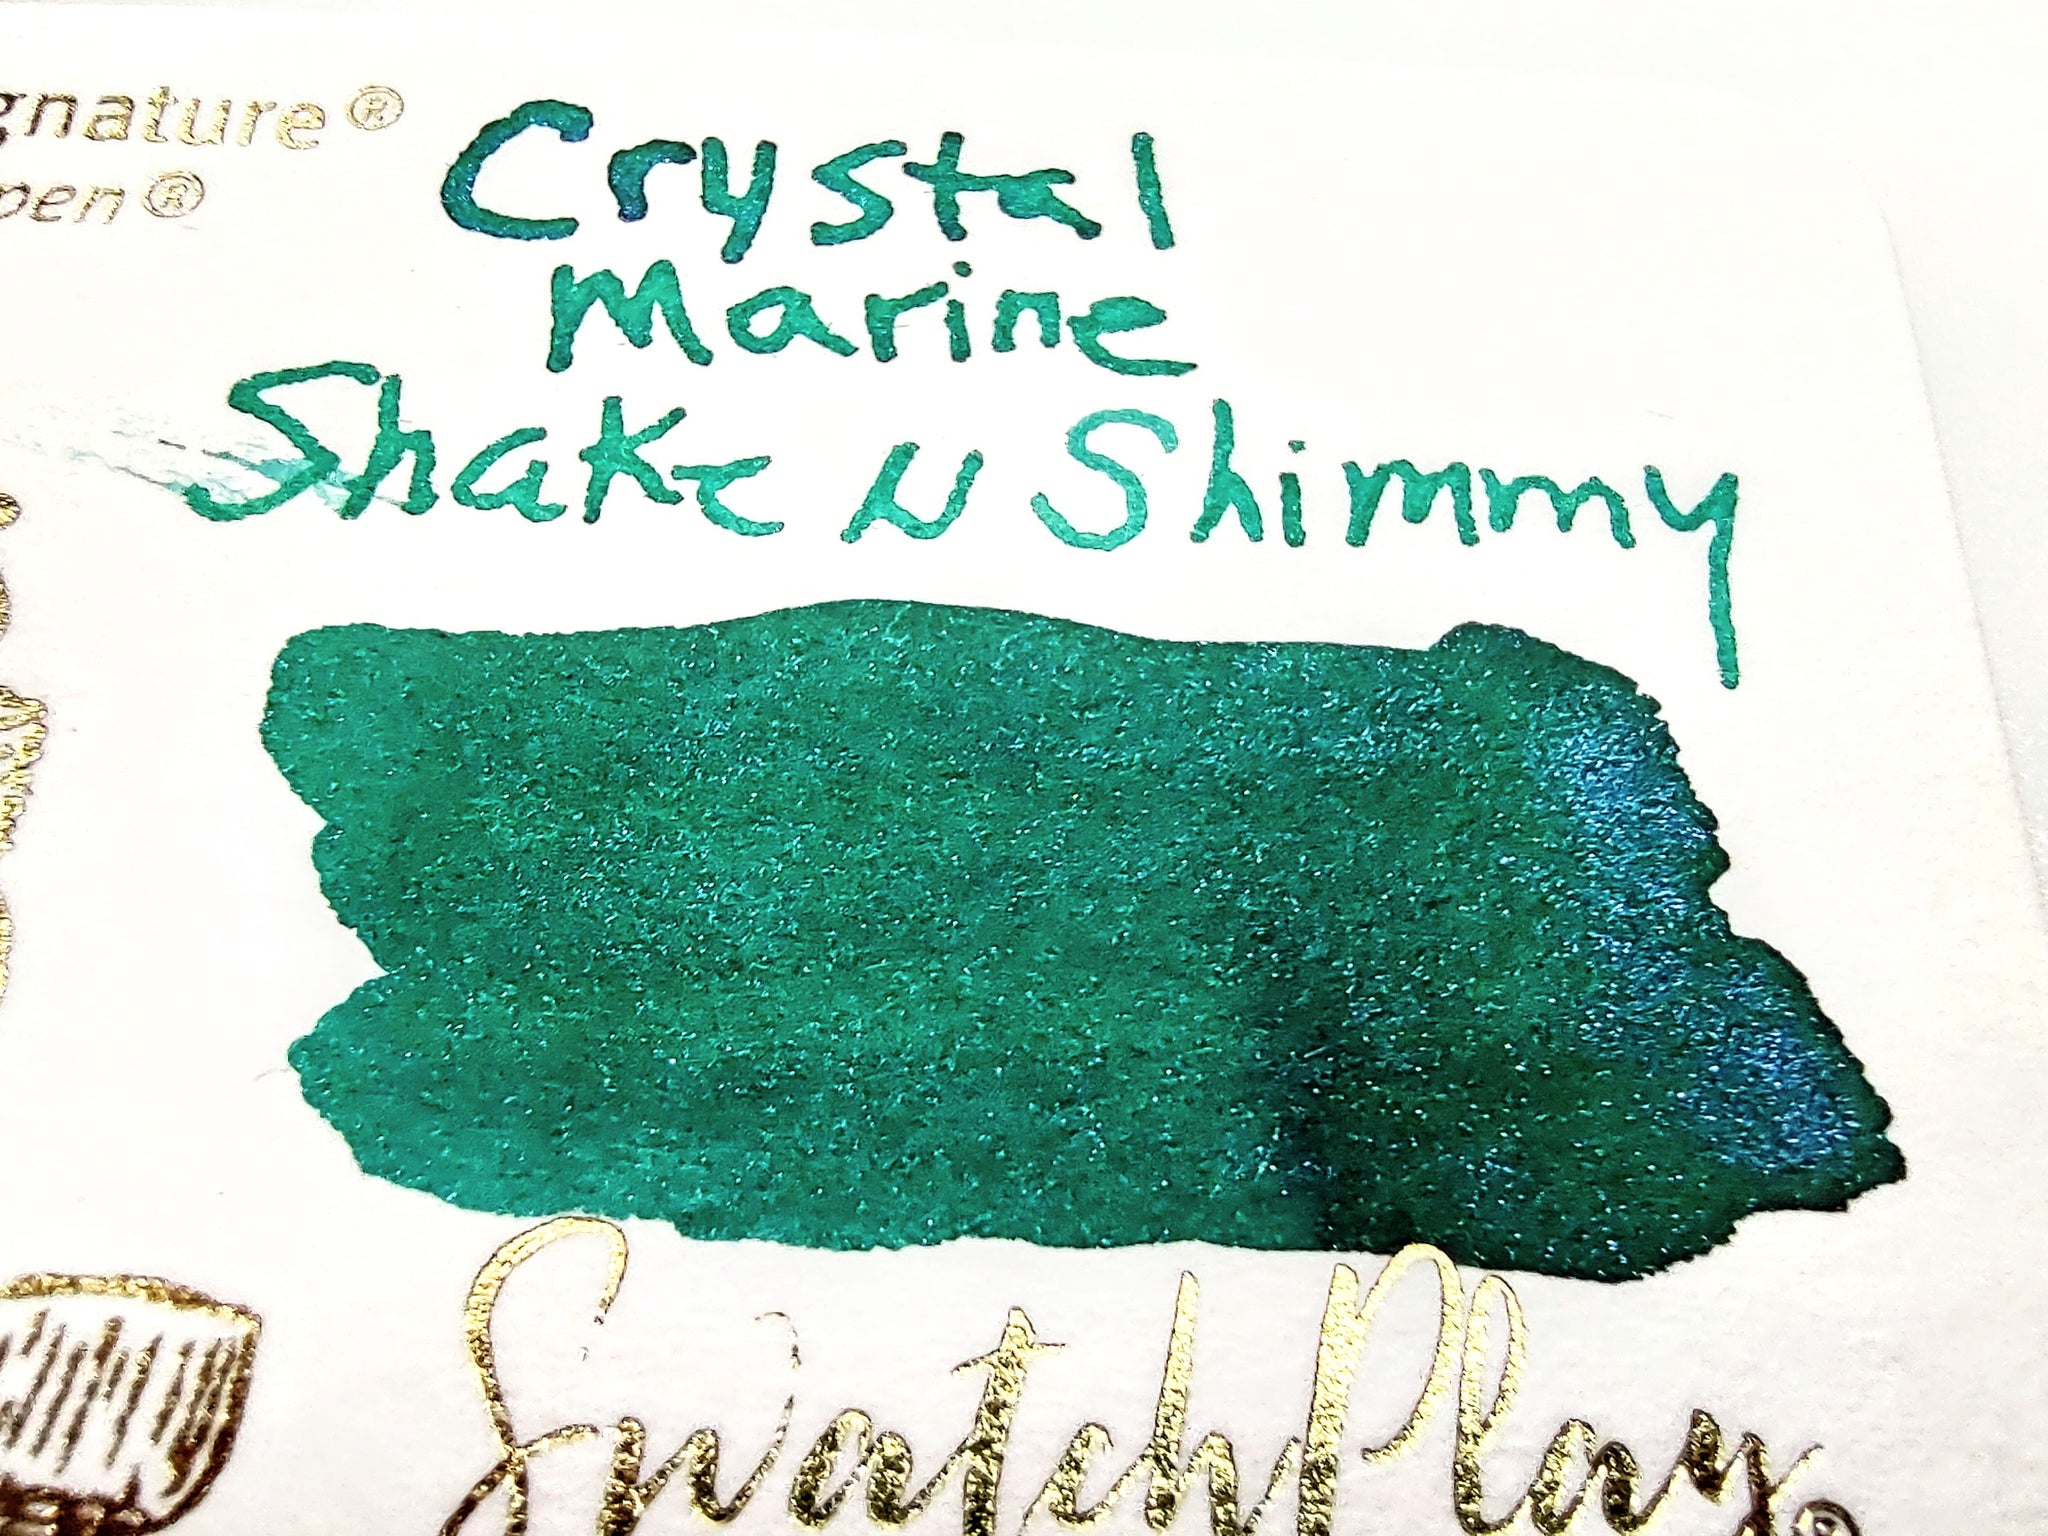 gnature®
pen®
Crystal
Marine
Shake N Shimmy
SwatchPlay®